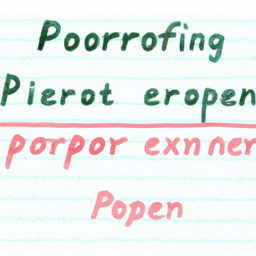 Poorrofing
Pierot eropen
porpor exnner
Popen